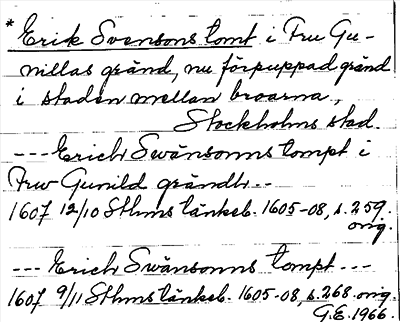 * Erik Svensons tomt i Fru Gu-
nillas gränd, nu förpuppad gränd
i staden mellan broarna,
Stockholms stad.
--- Erich Swänsonns tompt i
Frw Gunild grändh --
1607 12/10 Sthms tänkeb. 1605-08, s. 259.
orig.
--- Erich Swänsonns tompt ---
1607 9/11 Sthms tänkeb. 1605-08, s. 268. orig.
G.E. 1966.